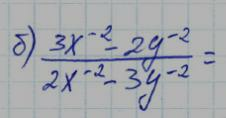 б) 3x⁻² - 2y⁻² / 2x⁻² - 3y⁻² =